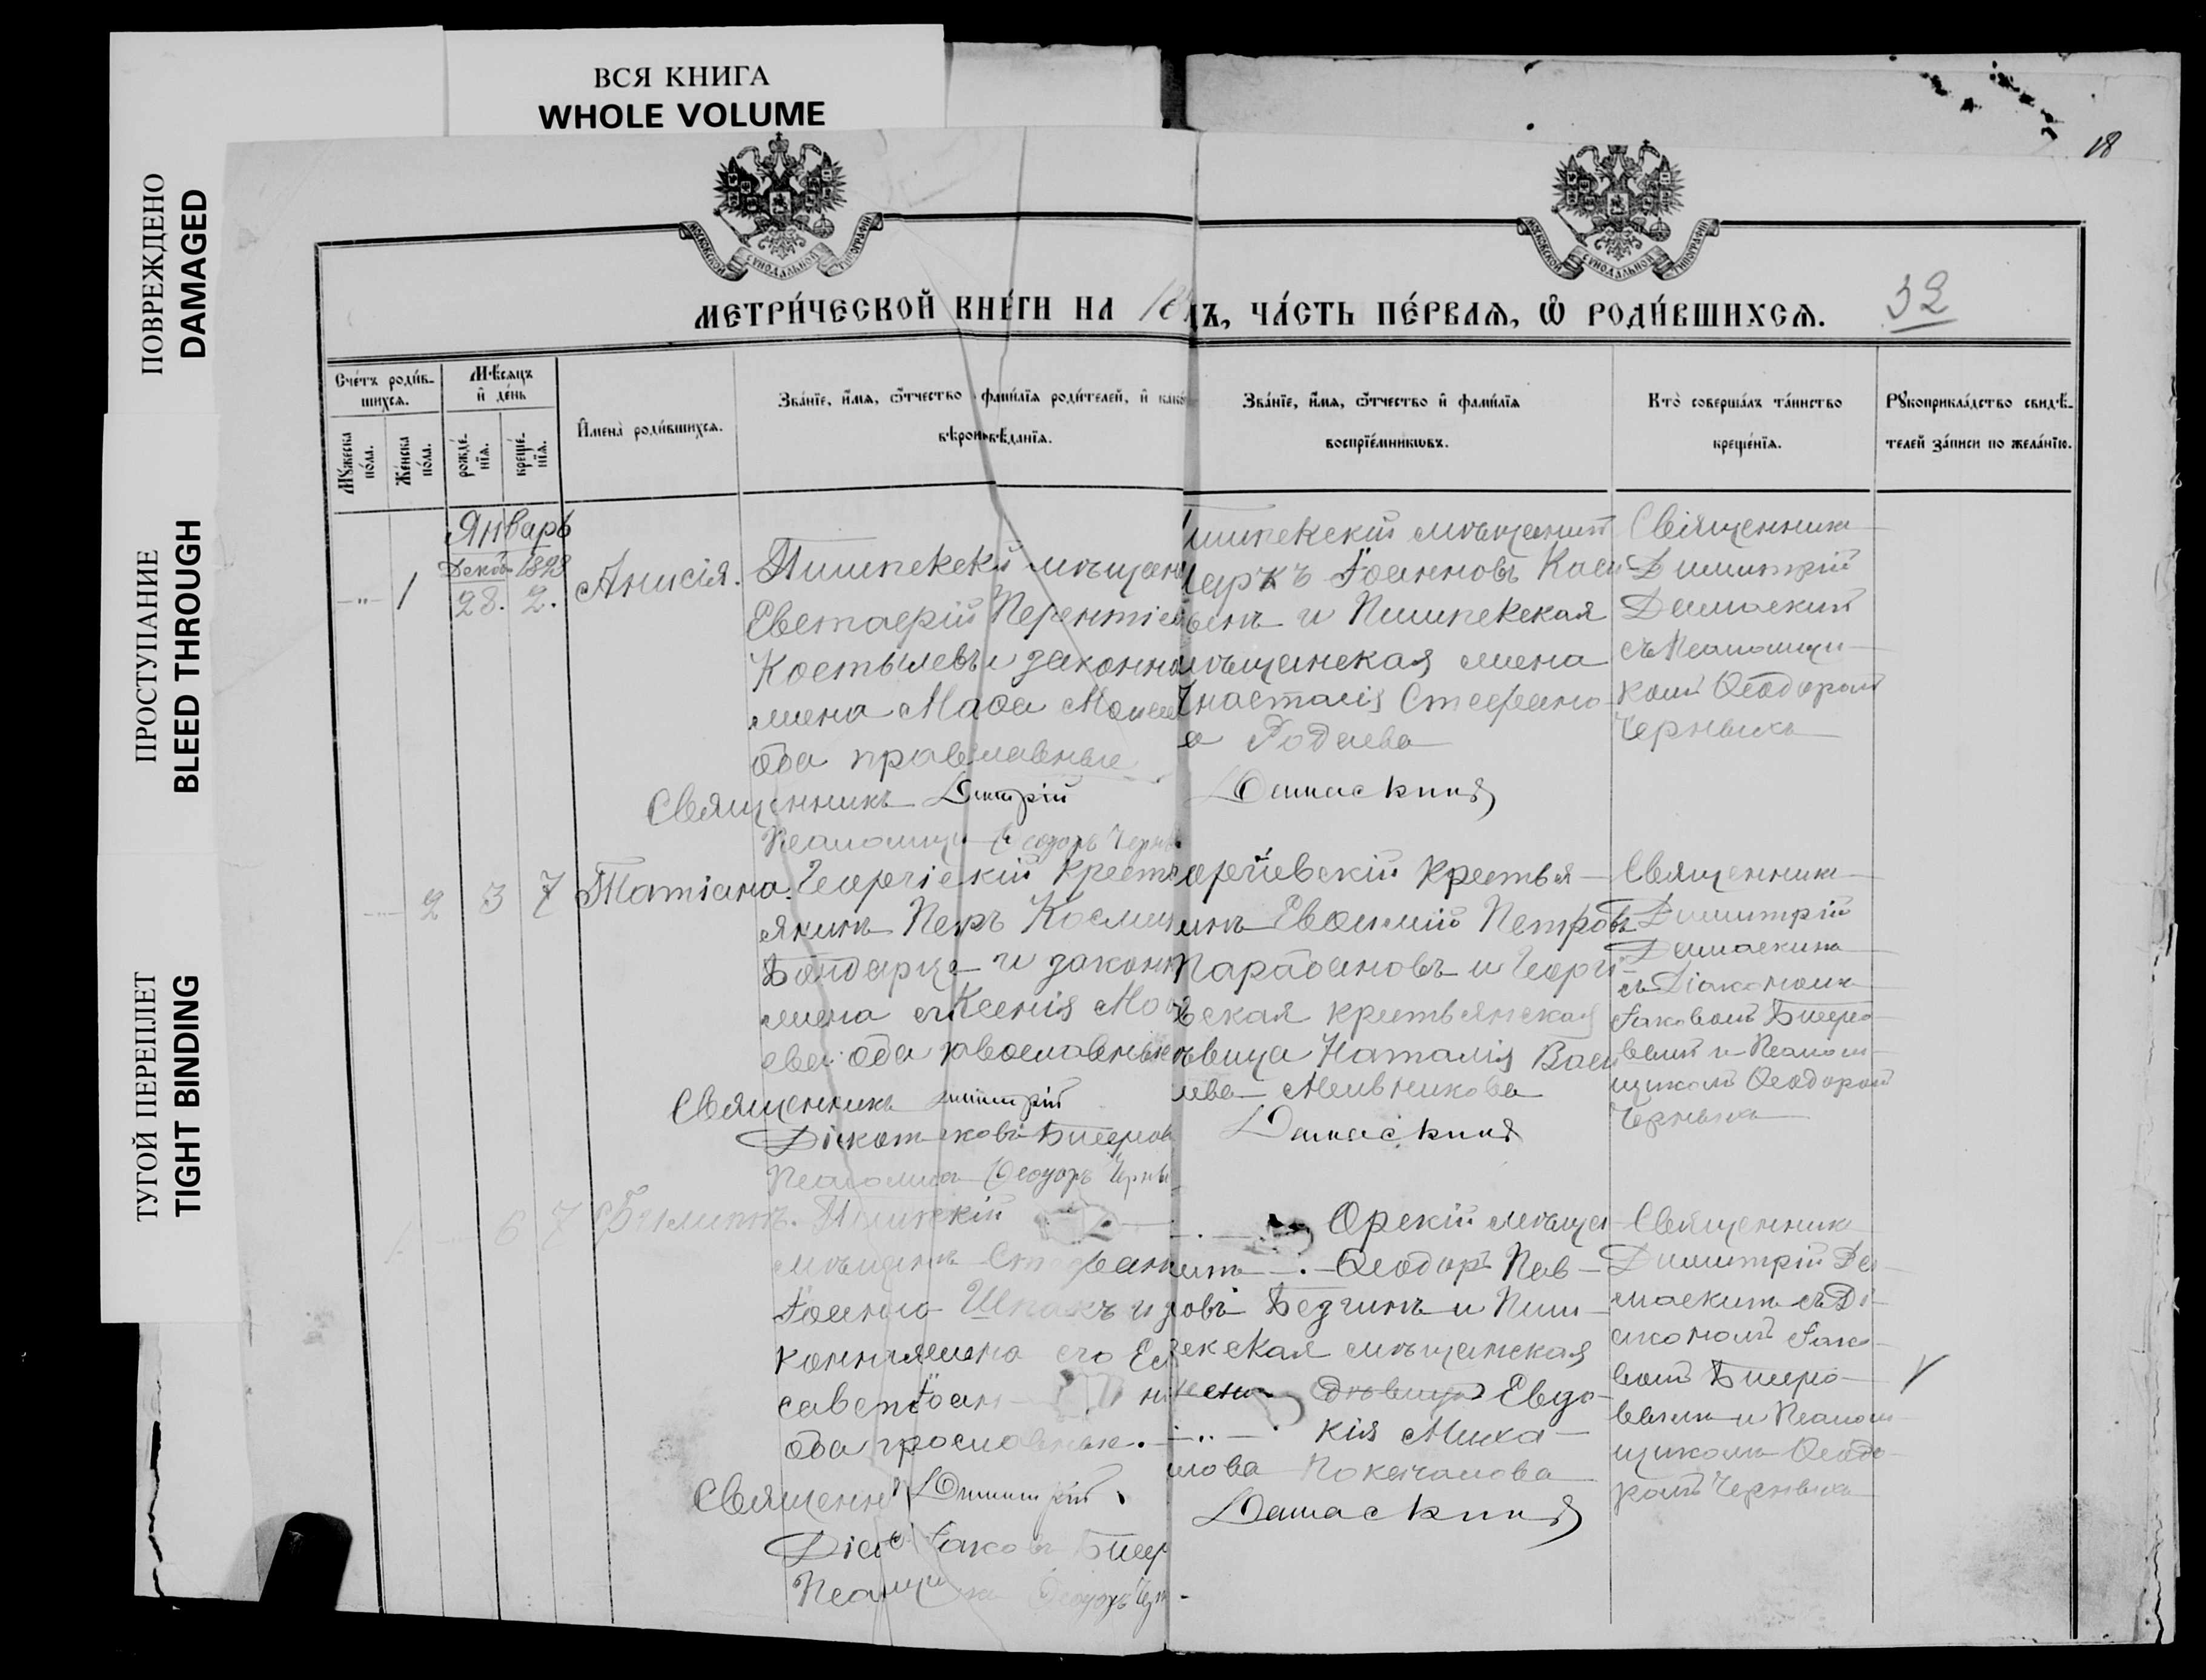 ВСЯ КНИГА
WHOLE VOLUME
ПОВРЕЖДЕНО
DAMAGED
ПРОСТУПАНИЕ
BLEED THROUGH
ТУГОЙ ПЕРЕПЛЕТ
TIGHT BINDING
18
МОСКОВСКОЙ СѴНОДАЛЬНОЙ ТИПОГРАФІИ
МОСКОВСКОЙ СѴНОДАЛЬНОЙ ТИПОГРАФІИ
МЕТРИ́ЧЕСКОЙ КНИ́ГИ НА 18 ДЪ, ЧА́СТЬ ПЕ́РВАѦ, Ѡ РОДИ́ВШИХСѦ.
32
Сче́тъ роди́в-
шихсѧ.
Мꙋ́жеска по́ла.
Же́нска по́ла.
Мѣ́сѧцъ и де́нь
рожде́-нїѧ.
креще́-нїѧ.
Имена̀ роди́вшихсѧ.
Зва́нїе, и́мѧ, ѻ́тчество фами́лїѧ роди́телей, и како
вѣроисповѣ́данїѧ.
Зва́нїе, и́мѧ, ѻ́тчество и фами́лїѧ
воспрїе́мникѡвъ.
Кто̀ соверша́лъ та́инство
креще́нїѧ.
Рꙋкоприкла́дство свидѣ́-
телей за́писи по жела́нїю.
Январь
Декаб. 1898
1 28. 2.
Анисія.
Пишпекскій мѣщан
Евстафій Терентіев
Костылевъ и законна
жена Моисе
оба православные
Священникъ Димитрій
Псаломщи Ѳеодоръ Черны
Пишпекскій мѣщанинъ
Маркъ Іоанновъ Касы
и Пишпекская
мѣщанская жена
Анастасія Стефано
а Родаева
Дамаскинъ
Священникъ
Димитрій
Дамаскинъ
съ Псаломщи
комъ Ѳеодоромъ
Черныхъ
2 3 7
Татіана.
Георгіевскій кресть
янинъ Петръ Космин
Бондарце и законн
жена Ксенія Мо
ева оба православные
Священникъ Димитрій
Діаконъ Іаковъ
Псаломщи Ѳеодоръ Черны
Георгіевскій крестья
нинъ Евѳимій Петровъ
Парабановъ и Георгі
евская крестьянская
дѣвица Наталія Васи
лева Мельникова
Дамаскинъ
Священникъ
Димитрій
Дамаскинъ
съ Діакономъ
Іаковомъ
и Псалом
щикомъ Ѳеодоромъ
Черныхъ
1 6 7
Филиппъ.
Пишпекскій
мѣщанинъ Стефанъ
Іоанно Шпакъ и за
конная жена его Ели
савета Іоан
оба православные.
Священн Димитрій
Діак Іаковъ
Псаломщи Ѳеодоръ Чер
Орскій мѣщан
инъ Ѳеодоръ Пав
ловъ и Пиш
пекская мѣщанская
жена дѣвица Евдо
кія Миха
илова
Дамаскинъ
Священникъ
Димитрій Да
маскинъ съ Ді
акономъ Іако
вомъ
и Псалом
щикомъ Ѳеодо
ромъ Черныхъ